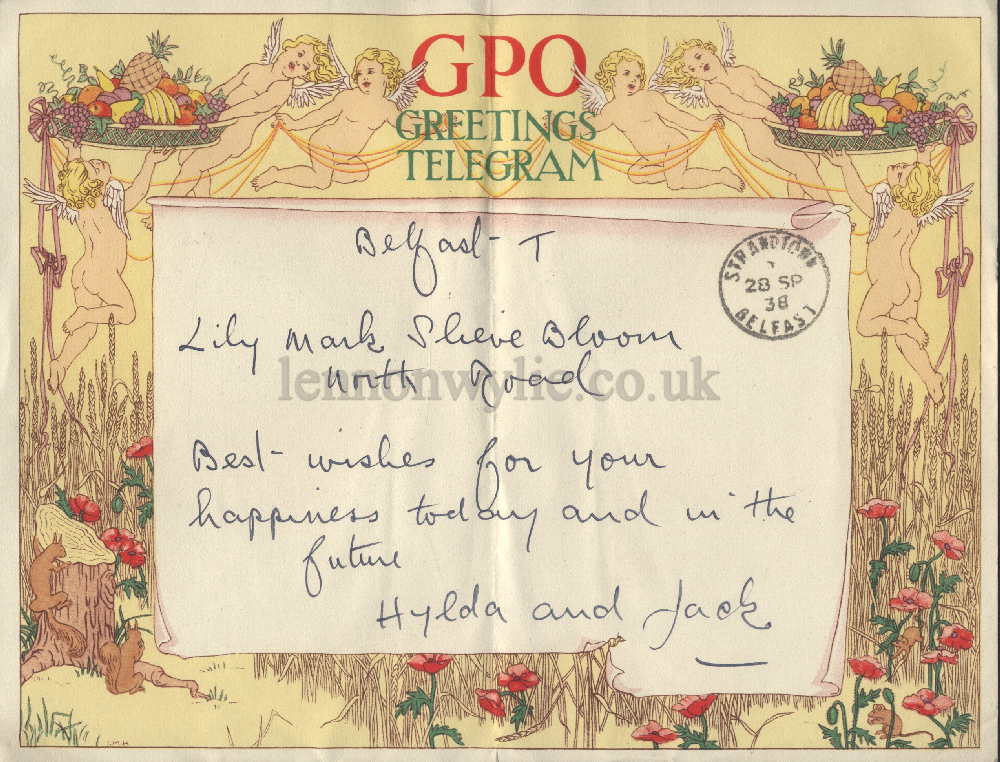 GPO
GREETINGS
TELEGRAM
Belfast T
STRANDTOWN
28 SP
38
BELFAST
Lily Mark Slieve Bloom
North Road
lennonwylie.co.uk
Best wishes for your
happiness today and in the
future
Hylda and Jack